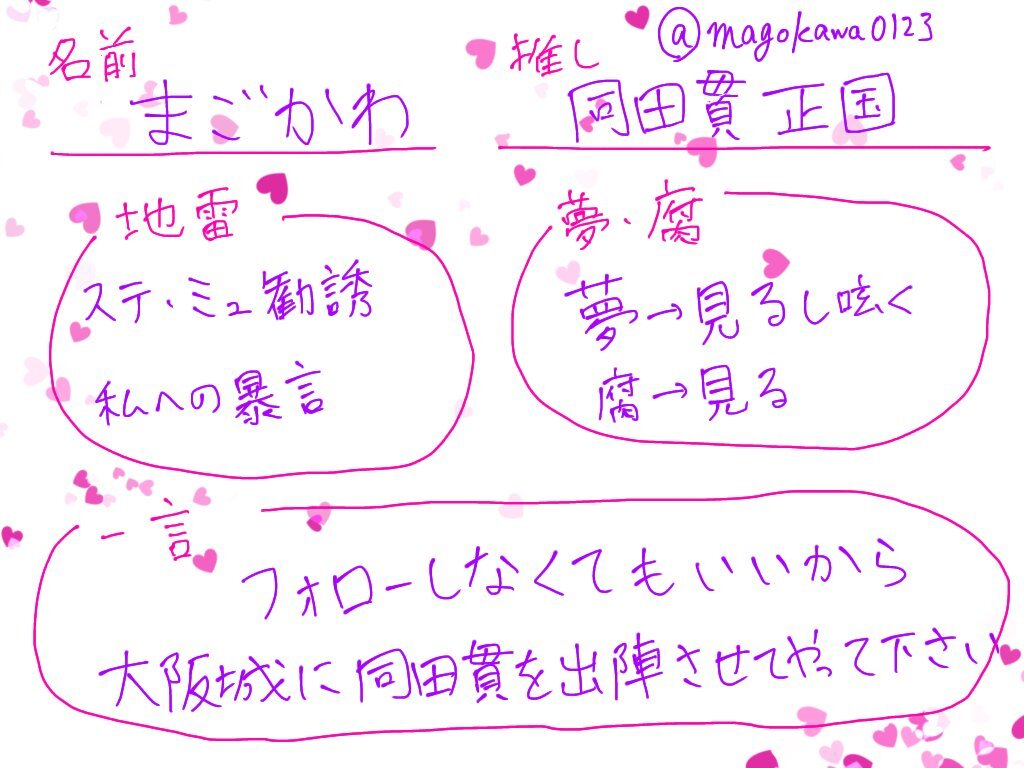 @magokawa0123
名前
まごかわ
推し
同田貫 正国
地雷
ステ・ミュ勧誘
私への暴言
夢・腐
夢→見るし呟く
腐→見る
一言
フォローしなくてもいいから
大阪城に同田貫を出陣させてやって下さい